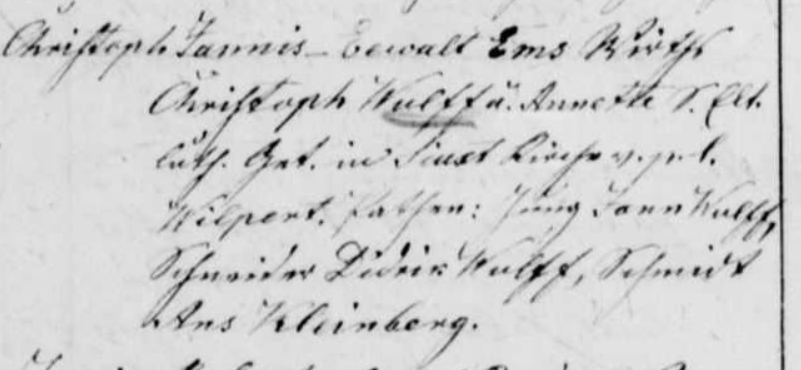 Christoph Jannis – Eewalt Ems Wirths
Christoph Wulff u. Annette S. Elt.
luth. Get. in Kirche v. p. l.
Wilpert. Pathen: Jung Jann Wulff,
Schneider Didrik Wulff, Schmidt
Ans Kleinberg.